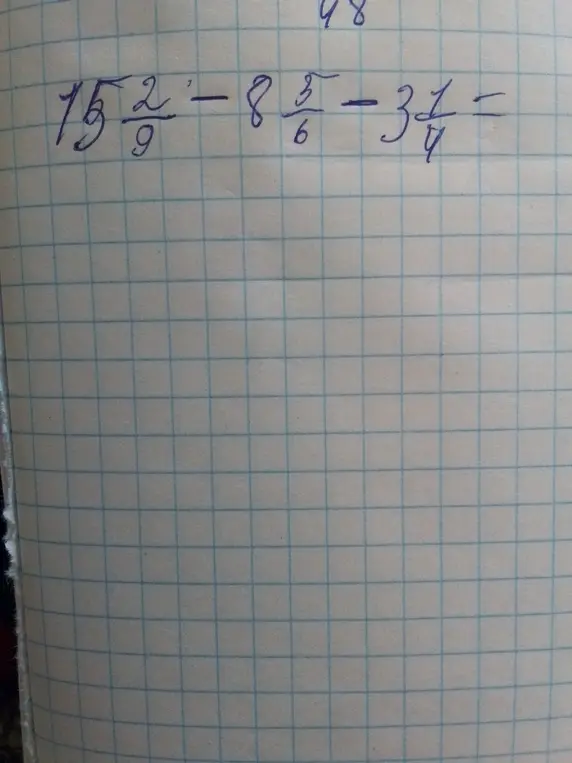 48
15 2/9 - 8 5/6 - 3 1/4 =